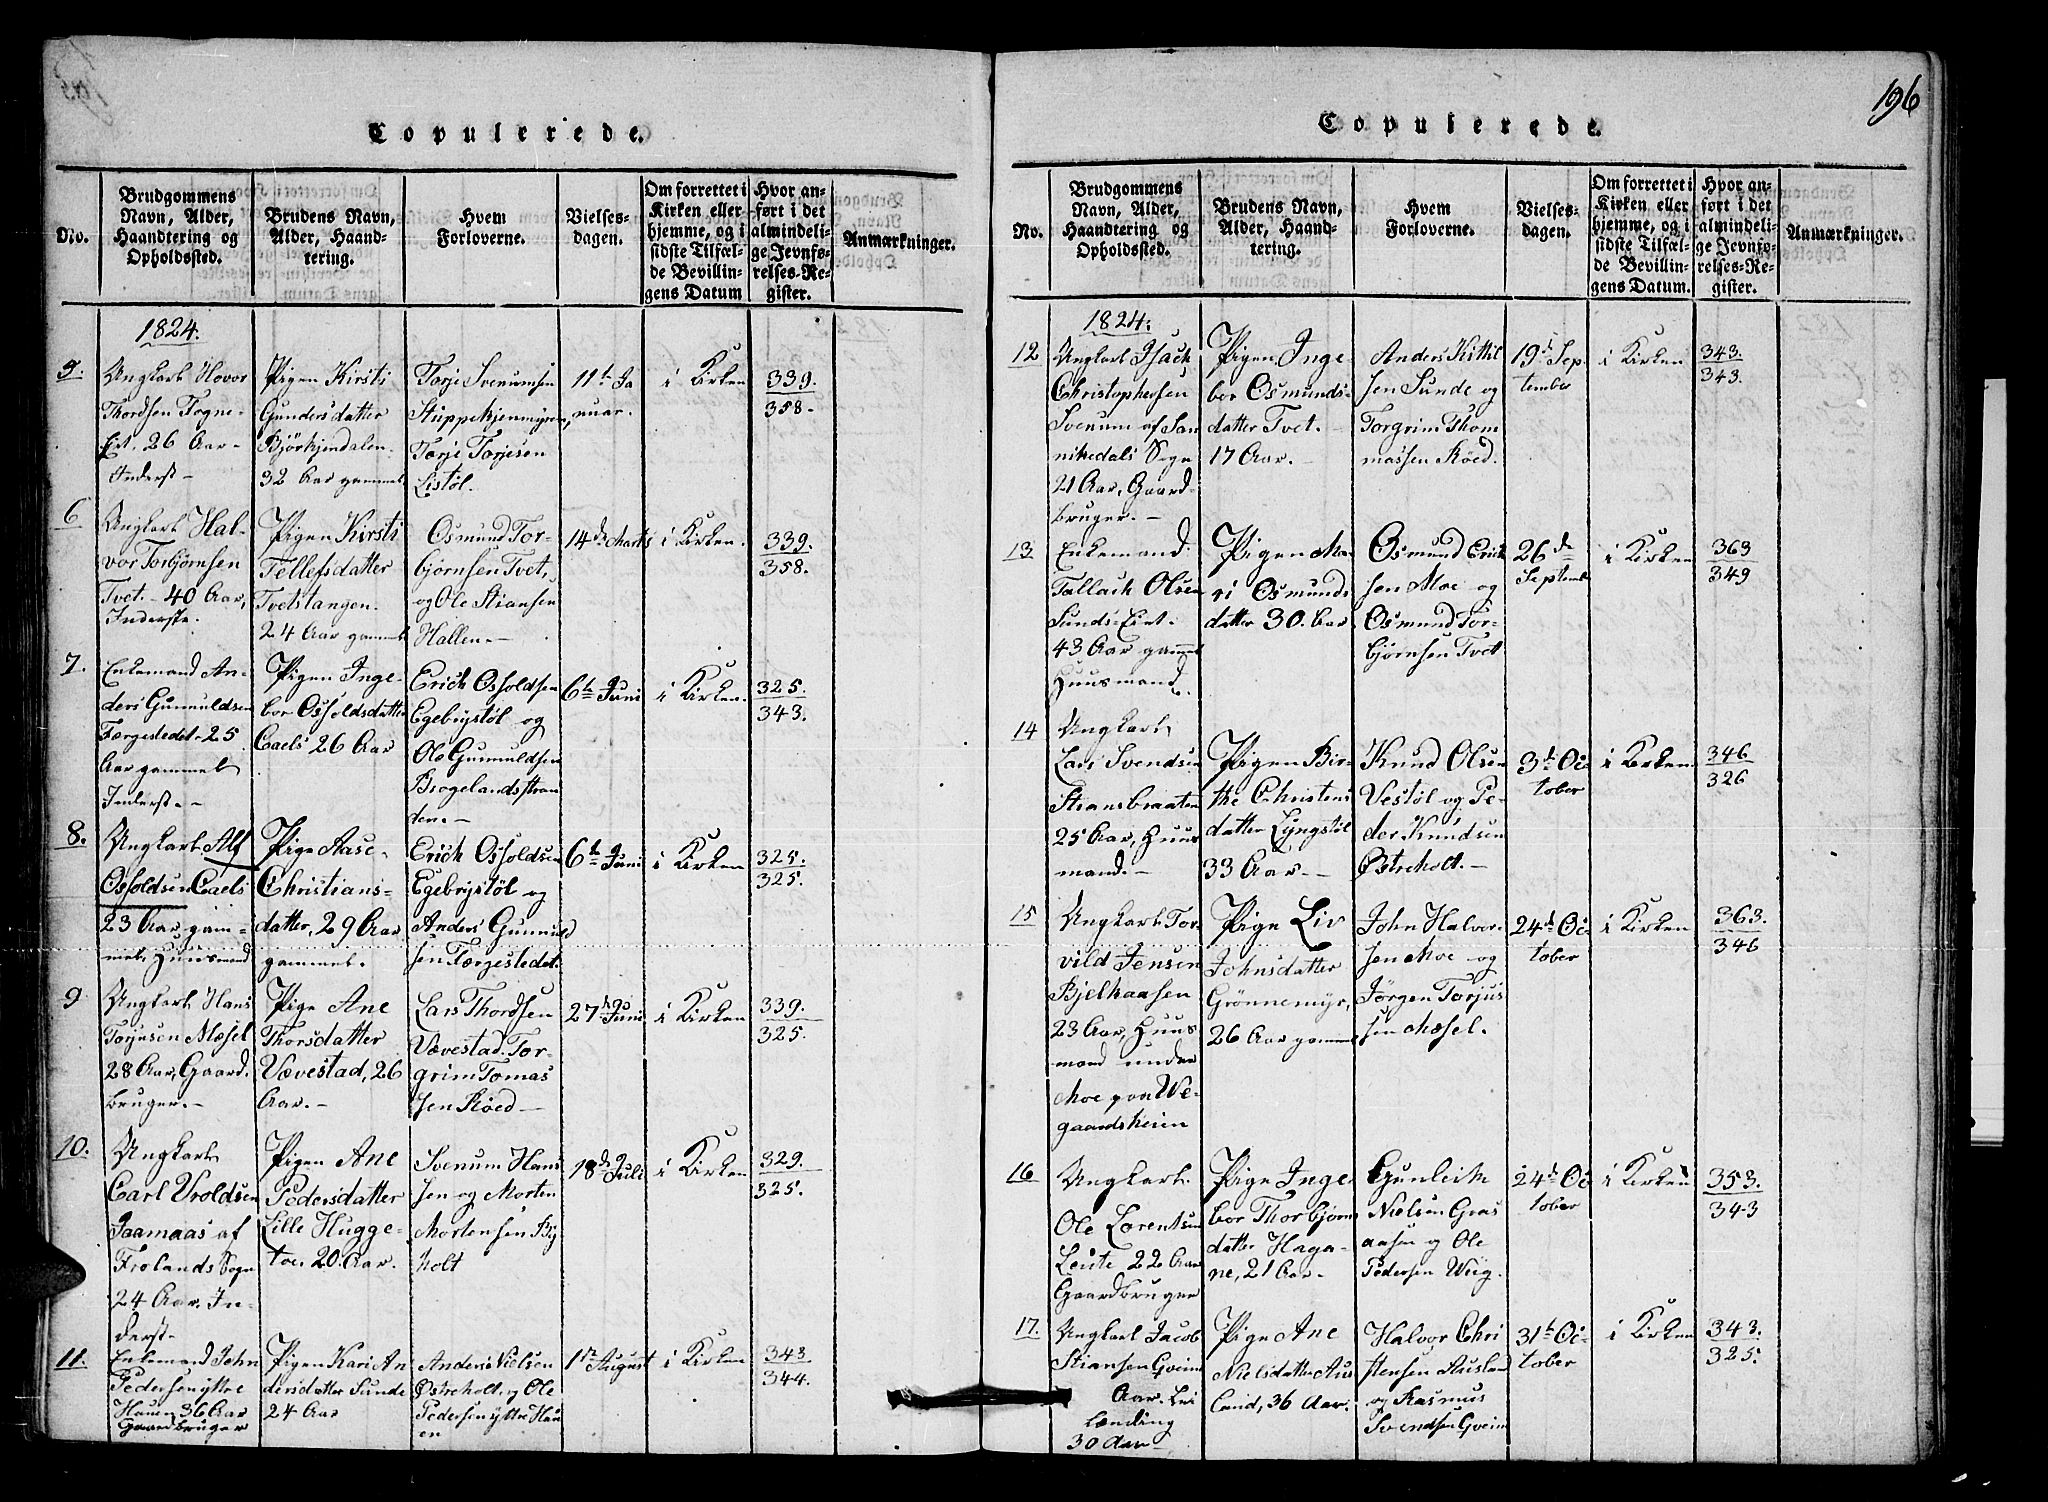 196
Copulerede.
No.
Brudgommens
Navn, Alder,
Haandtering og
Opholdssted.
Brudens Navn,
Alder, Haand-
tering.
Hvem
Forloverne.
Vielses-
dagen.
Om forrettet i
Kirken eller
hjemme, og i
sidste Tilfæl-
de Bevillin-
gens Datum
Hvor an-
ført i det
almindeli-
ge Jevnfø-
relses-Re-
gister.
Anmærkninger.
1824.
5.
Ungkarl Hovor
Thordsen Fogne-
Eit, 26 Aar-
Inderst-
Pigen Kirsti
Gundersdatter
Bjørkjendalen
32 Aar gammel
Torje Svenumsen
Stuppekjenmyren,
Torje Torjesen
Listøl.
11te Ja
nuar.
i Kirken
339.
358.
6
Ungkarl Hal-
vor Torbjørnsen
Tvet. - 40 Aar,
Inderste.
Pigen Kirsti
Tellefsdatter
Tvetstangen.
24 Aar gammel
Osmund Tor-
bjørnsen Tvet,
og Ole Stiansen
Hallen.-
14de Marts
i Kirken.
339.
358.
7.
Enkemand An-
ders Gunnuldsen
Færgestedet-25
Aar gammel
Inderst.-
Pigen Inge-
bor Osfoldsdatter
Caels 26 Aar
Erich Osfoldsen
Egebrystøl og
Ole Gunnuldsen
Brogelandsstran
den.-
6te Juni
i Kirken.
325.
343.
8.
Ungkarl Alf
Osfoldsen Caels
23 Aar gam-
mel, Huusmand
Pige Aase
Christians-
datter, 29 Aar
gammel.
Erich Osfoldsen
Egebrystøl og
Anders Gunnuld
sen Færgestedet.
6te Juni
i Kirken
325.
325.
9
Ungkarl Hans
Torjusen Mæsel
28 Aar, Gaard-
bruger.-
Pige Ane
Thorsdatter
Vævestad, 26
Aar.-
Lars Thordsen
Vævestad. Tor-
grim Tomas
sen Røed-
27de Juni
i Kirken
339.
325.
10.
Ungkarl
Carl Vroldsen
Jaamaas af
Frolands Sogn
24 Aar. In-
derst-
Pigen Ane
Pedersdatter
Lille Hugge-
toe. 20. Aar.
Svenum Hans
sen og Morten
Mortensen By
holt
18de Juli
i Kirken
329.
325.
11.
Enkemand John
Pedersen Yttre
Hauen 36 Aar
Gaardbruger
Pigen Kari An
dersdatter Sunde
24 Aar
Anders Nielsen
Østreholt, og Ole
Pedersen Yttre Hau
en
1ste August
i Kirken
343
344.
Copulerede.
No.
Brudgommens
Navn, Alder,
Haandtering og
Opholdssted.
Brudens Navn,
Alder, Haand-
tering.
Hvem
Forloverne.
Vielses-
dagen.
Om forrettet i
Kirken eller
hjemme, og i
sidste Tilfæl-
de Bevillin-
gens Datum.
Hvor an-
ført i det
almindeli-
ge Jevnfø-
relses-Re-
gister.
Anmærkninger.
1824.
12
Ungkarl Isack
Christophersen
Svenum af San
nikedals Sogn
21 Aar, Gaard-
bruger.-
Pigen Inge-
bor Osmunds-
datter Tvet.-
17 Aar.-
Anders Kittil
sen Sunde og
Torgrim Thom
massen Røed.
19de Sep
tember
i Kirken
343.
343.
13.
Enkemand
Tallach Olsen
Sunds-Eiet.
43 Aar gammel
Huusmand.
Pigen Ma
ri Osmunds
datter 30. Aar.
Osmund Erich
sen Moe og
Osmund Tor-
bjørnsen Tvet
26de
September
i Kirken
363
349
14
Ungkarl
Lars Svendsen
Stiansbraaten
25 Aar, Huus
mand.-
Pigen Bir-
the Christens
datter Lyngstøl
33 Aar.-
Knud Olsen
Vestøl og Pe-
der Knudsen
Østreholt.-
3de Oc-
tober
i Kirken
346
326
15
Ungkarl Tor-
vild Jensen
Bjelkaasen
23 Aar, Huus
mand under
Moe paa We-
gaardsheien
Pige Liv
Johnsdatter
Grønnemyr,
26 Aar gammel
John Halvor-
sen Moe og
Jørgen Torjus
sen Mæsel.
24de Oc-
tober
i Kirken
363.
346
16
Ungkarl
Ole Lorentsen
Leite 22 Aar
Gaardbruger
Pige Inge
bor Thorbjørn
datter Haga-
ne, 21 Aar.-
Gunleik
Nielsen Gras
aasen og Ole
Pedersen Weig.
24de Oc
tober
i Kirken
353.
343
17.
Ungkarl Jacob
Stiansen Gveim
Aar.
lænding
30 Aar
Pige Ane
Nielsdatter Aus
land, 36 Aar.
Halvor Chri
stensen Ausland
og Rasmus
Svendsen Gveim
31te Oc-
tober
i Kirken
343.
325.